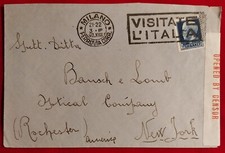 MILANO
21-22
VISITATE
L'ITALIA
Spett. Ditta
Bausch e Lomb
Optical Company
(Rochester)
New York
OPENED BY CENSOR